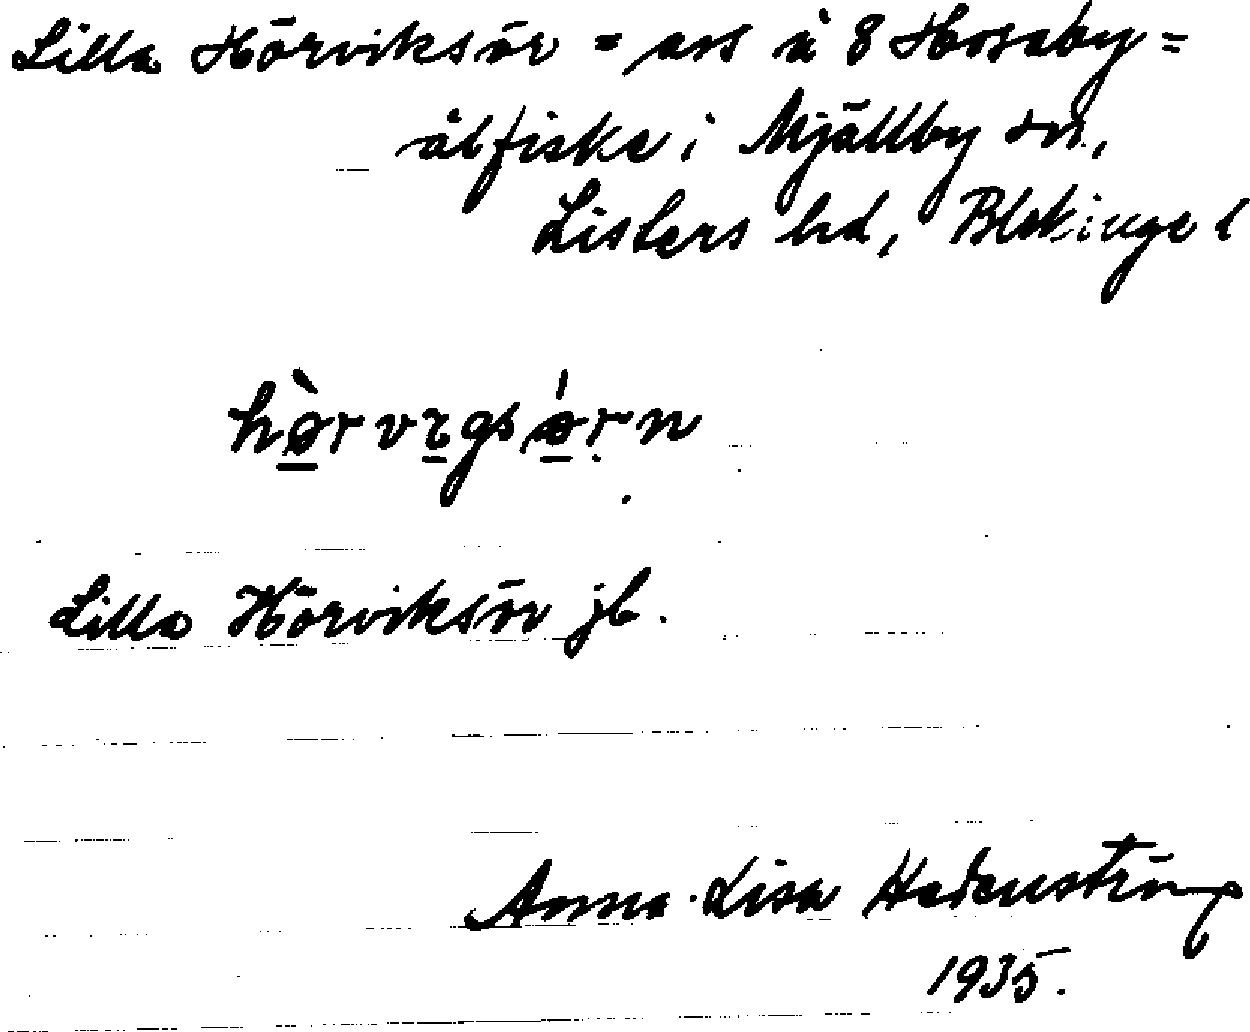 Lilla Hörviksör = avs å 8 Hosaby=
ålfiske i Mjällby sn,
Listers hd, Blekinge l
Lilla Hörviksör jb.
Anna-Lisa Hedenström
1935.